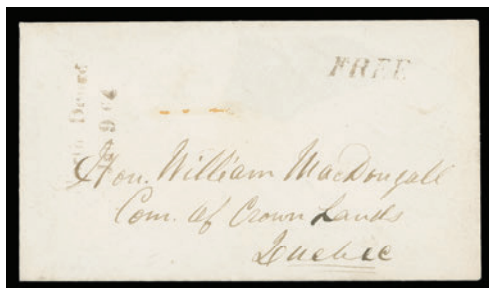 FREE
Hon. William MacDougall
Com. of Crown Lands
Quebec